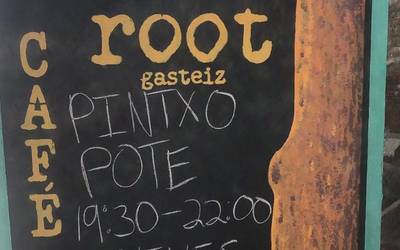 root
gasteiz
CAFÉ
PINTXO
POTE
19:30-22:00